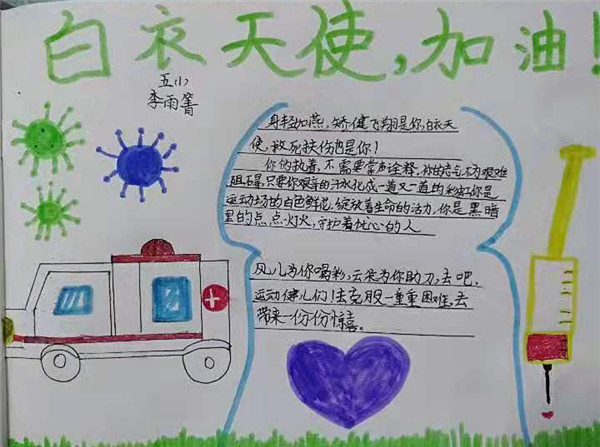 白衣天使,加油!
五小
李雨箐
身轻如燕,矫健飞翔是你,白衣天
使,救死扶伤也是你!
你的执着,不需要掌声诠释,你的勇气不为艰难
阻碍,只要你艰辛的汗水化成一道又一道的彩虹,你是
运动场的白色鲜花,绽放着生命的活力,你是黑暗
里的点点灯火,守护着忧心的人
风儿为你喝彩,云朵为你助力,去吧,
运动健儿们!去克服一重重困难,去
带来一份份惊喜。